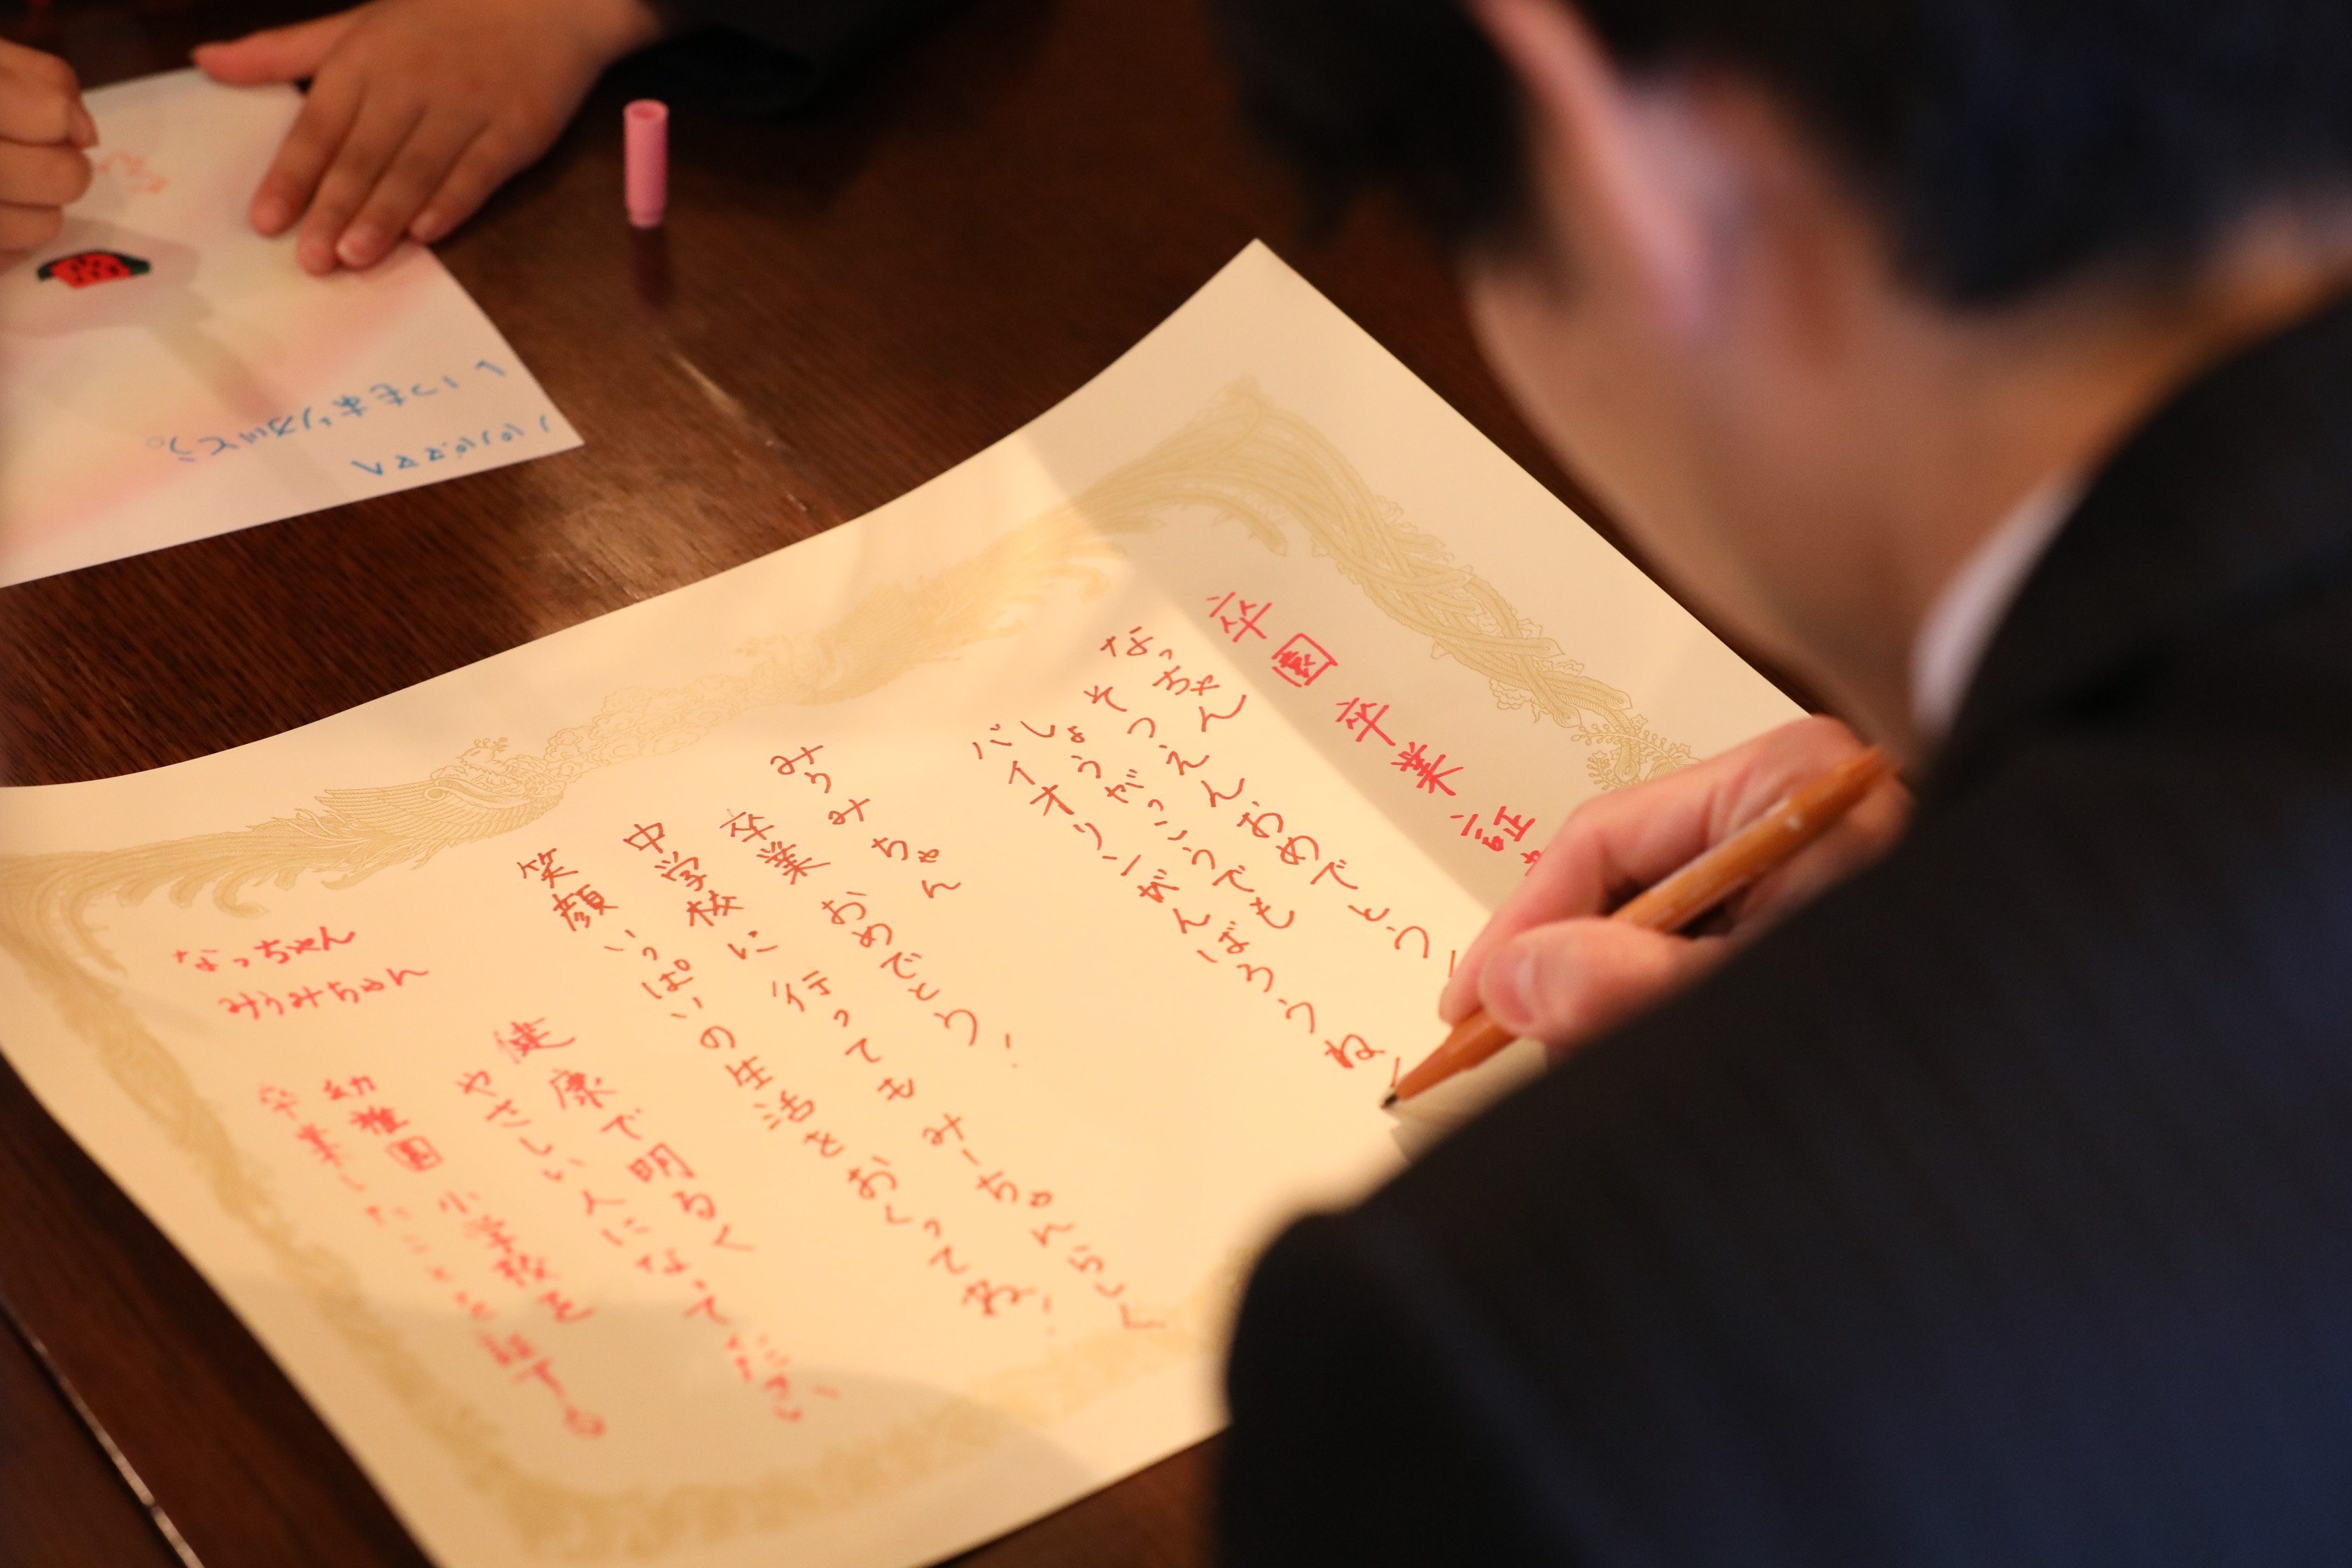 卒園卒業証
なっちゃん
そつえんおめでとう！
しょうがっこうでも
バイオリンがんばろうね！
みうみちゃん
卒業おめでとう！
中学校に行ってもみーちゃんらしく
笑顔いっぱいの生活をおくってね！
なっちゃん
みうみちゃん
健康で明るく
やさしい人になってください
幼稚園 小学校を
卒業したことを証する
パパ、ママへ
いつもありがとう。